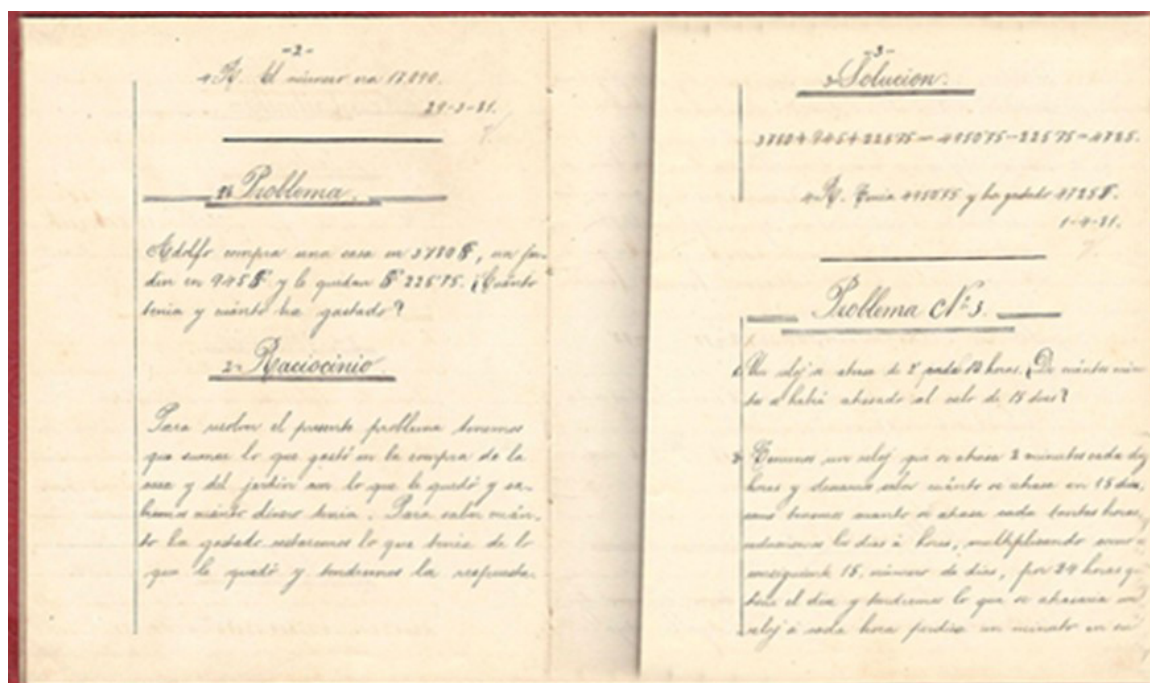 -2-
4 R. El número era 17,090.
29-3-81.
2º Problema.
Adolfo compra una casa en 3780 $, un jar-
dín en 945 $ y le quedan $ 22575. ¿Cuánto
tenía y cuánto ha gastado?
2- Raciocinio.
Para resolver el presente problema tenemos
que sumar lo que gastó en la compra de la
casa y del jardín con lo que le quedó y sa-
bremos cuánto dinero tenía. Para saber cuán-
to ha gastado restaremos lo que tenía de lo
que le quedó y tendremos la respuesta.
-3-
3- Solucion.
3780+945+22575 — 495075-22575-4725.
4 R. Tenía y ha gastado 4725 $.
1-4-81.
Problema Nº 3.
Un reloj se atrasa de 2' cada horas. ¿De cuántos minu-
tos se habrá atrasado al cabo de 15 días?
Tenemos un reloj que se atrasa 2 minutos cada
horas y deseamos saber cuánto se atrasa en 15 días,
tenemos cuanto se atrasa cada tantas horas,
los días á horas, multiplicando
15, número de días, por 24 horas q
tiene el día y tendremos lo que se atrasaría un
reloj si cada hora perdiese un minuto en